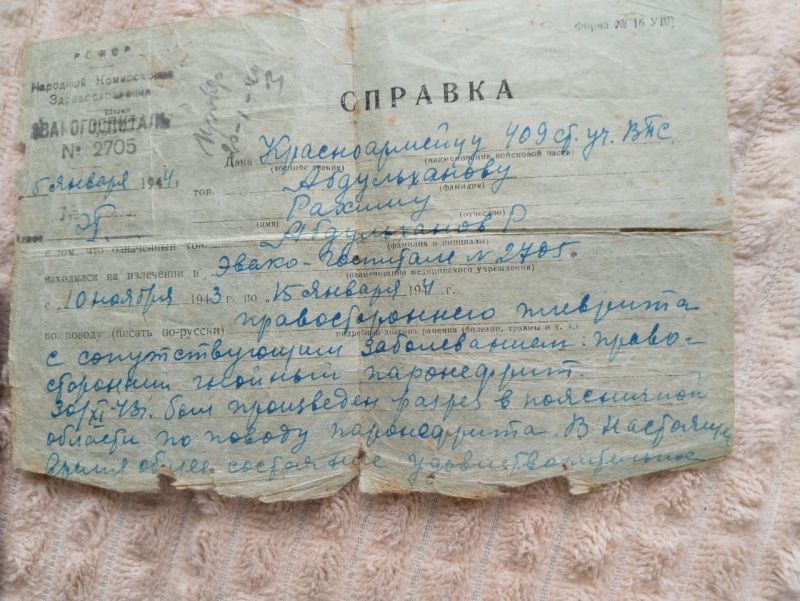 Форма № 16 УВГ
РСФСР
Народный Комиссариат
Здравоохранения
ЭВАКОГОСПИТАЛЬ
№ 2705
15 января 1944 г.
№
СПРАВКА
Дана Красноармейцу 409 ст. уч. ВПС
(воинское звание) (наименование войсковой части)
тов. Абдульханову
(фамилия)
Рахиму
(имя) (отчество)
в том, что означенный тов. Абдульханов Р
(фамилия и инициалы)
находился на излечении в Эвако-госпитале N 2705.
(наименование медицинского учреждения)
с 10 ноября 1943 г. по 15 января 194 г.
по поводу (писать по-русски) правостороннего плеврита
подробный диагноз ранения (болезни, травмы и т. д.)
с сопутствующим заболеванием: право-
сторонний гнойный паронефрит.
30/XI-43г. был произведен разрез в поясничной
области по поводу паронефрита. В настояще
время общее состояние удовлетворительное